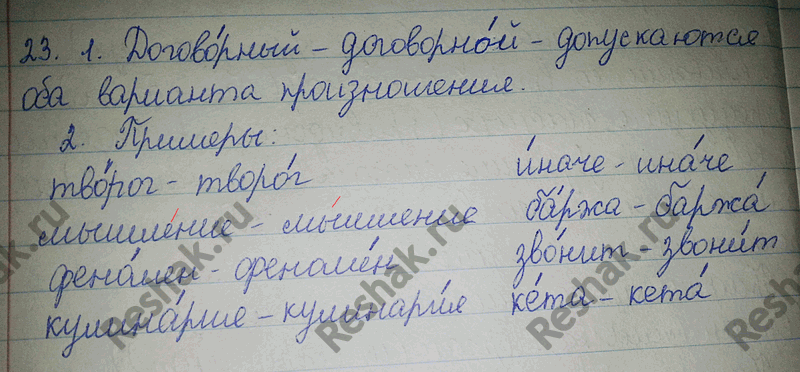 23. 1. Догово́рный – договорно́й – допускаются
оба варианта произношения.
2. Примеры:
тво́рог – творо́г
мышле́ние – мы́шление
фено́мен – феноме́н
кулина́рие – кулинари́я
и́наче – ина́че
ба́ржа – баржа́
зво́нит – звони́т
ке́та – кета́
Reshak.ru
Reshak.ru
Reshak.ru
Reshak.ru
Resha